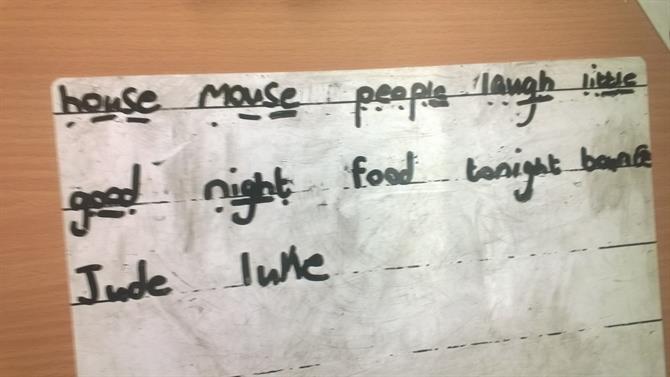 house mouse people laugh little
good night food tonight bounce
Jude luke